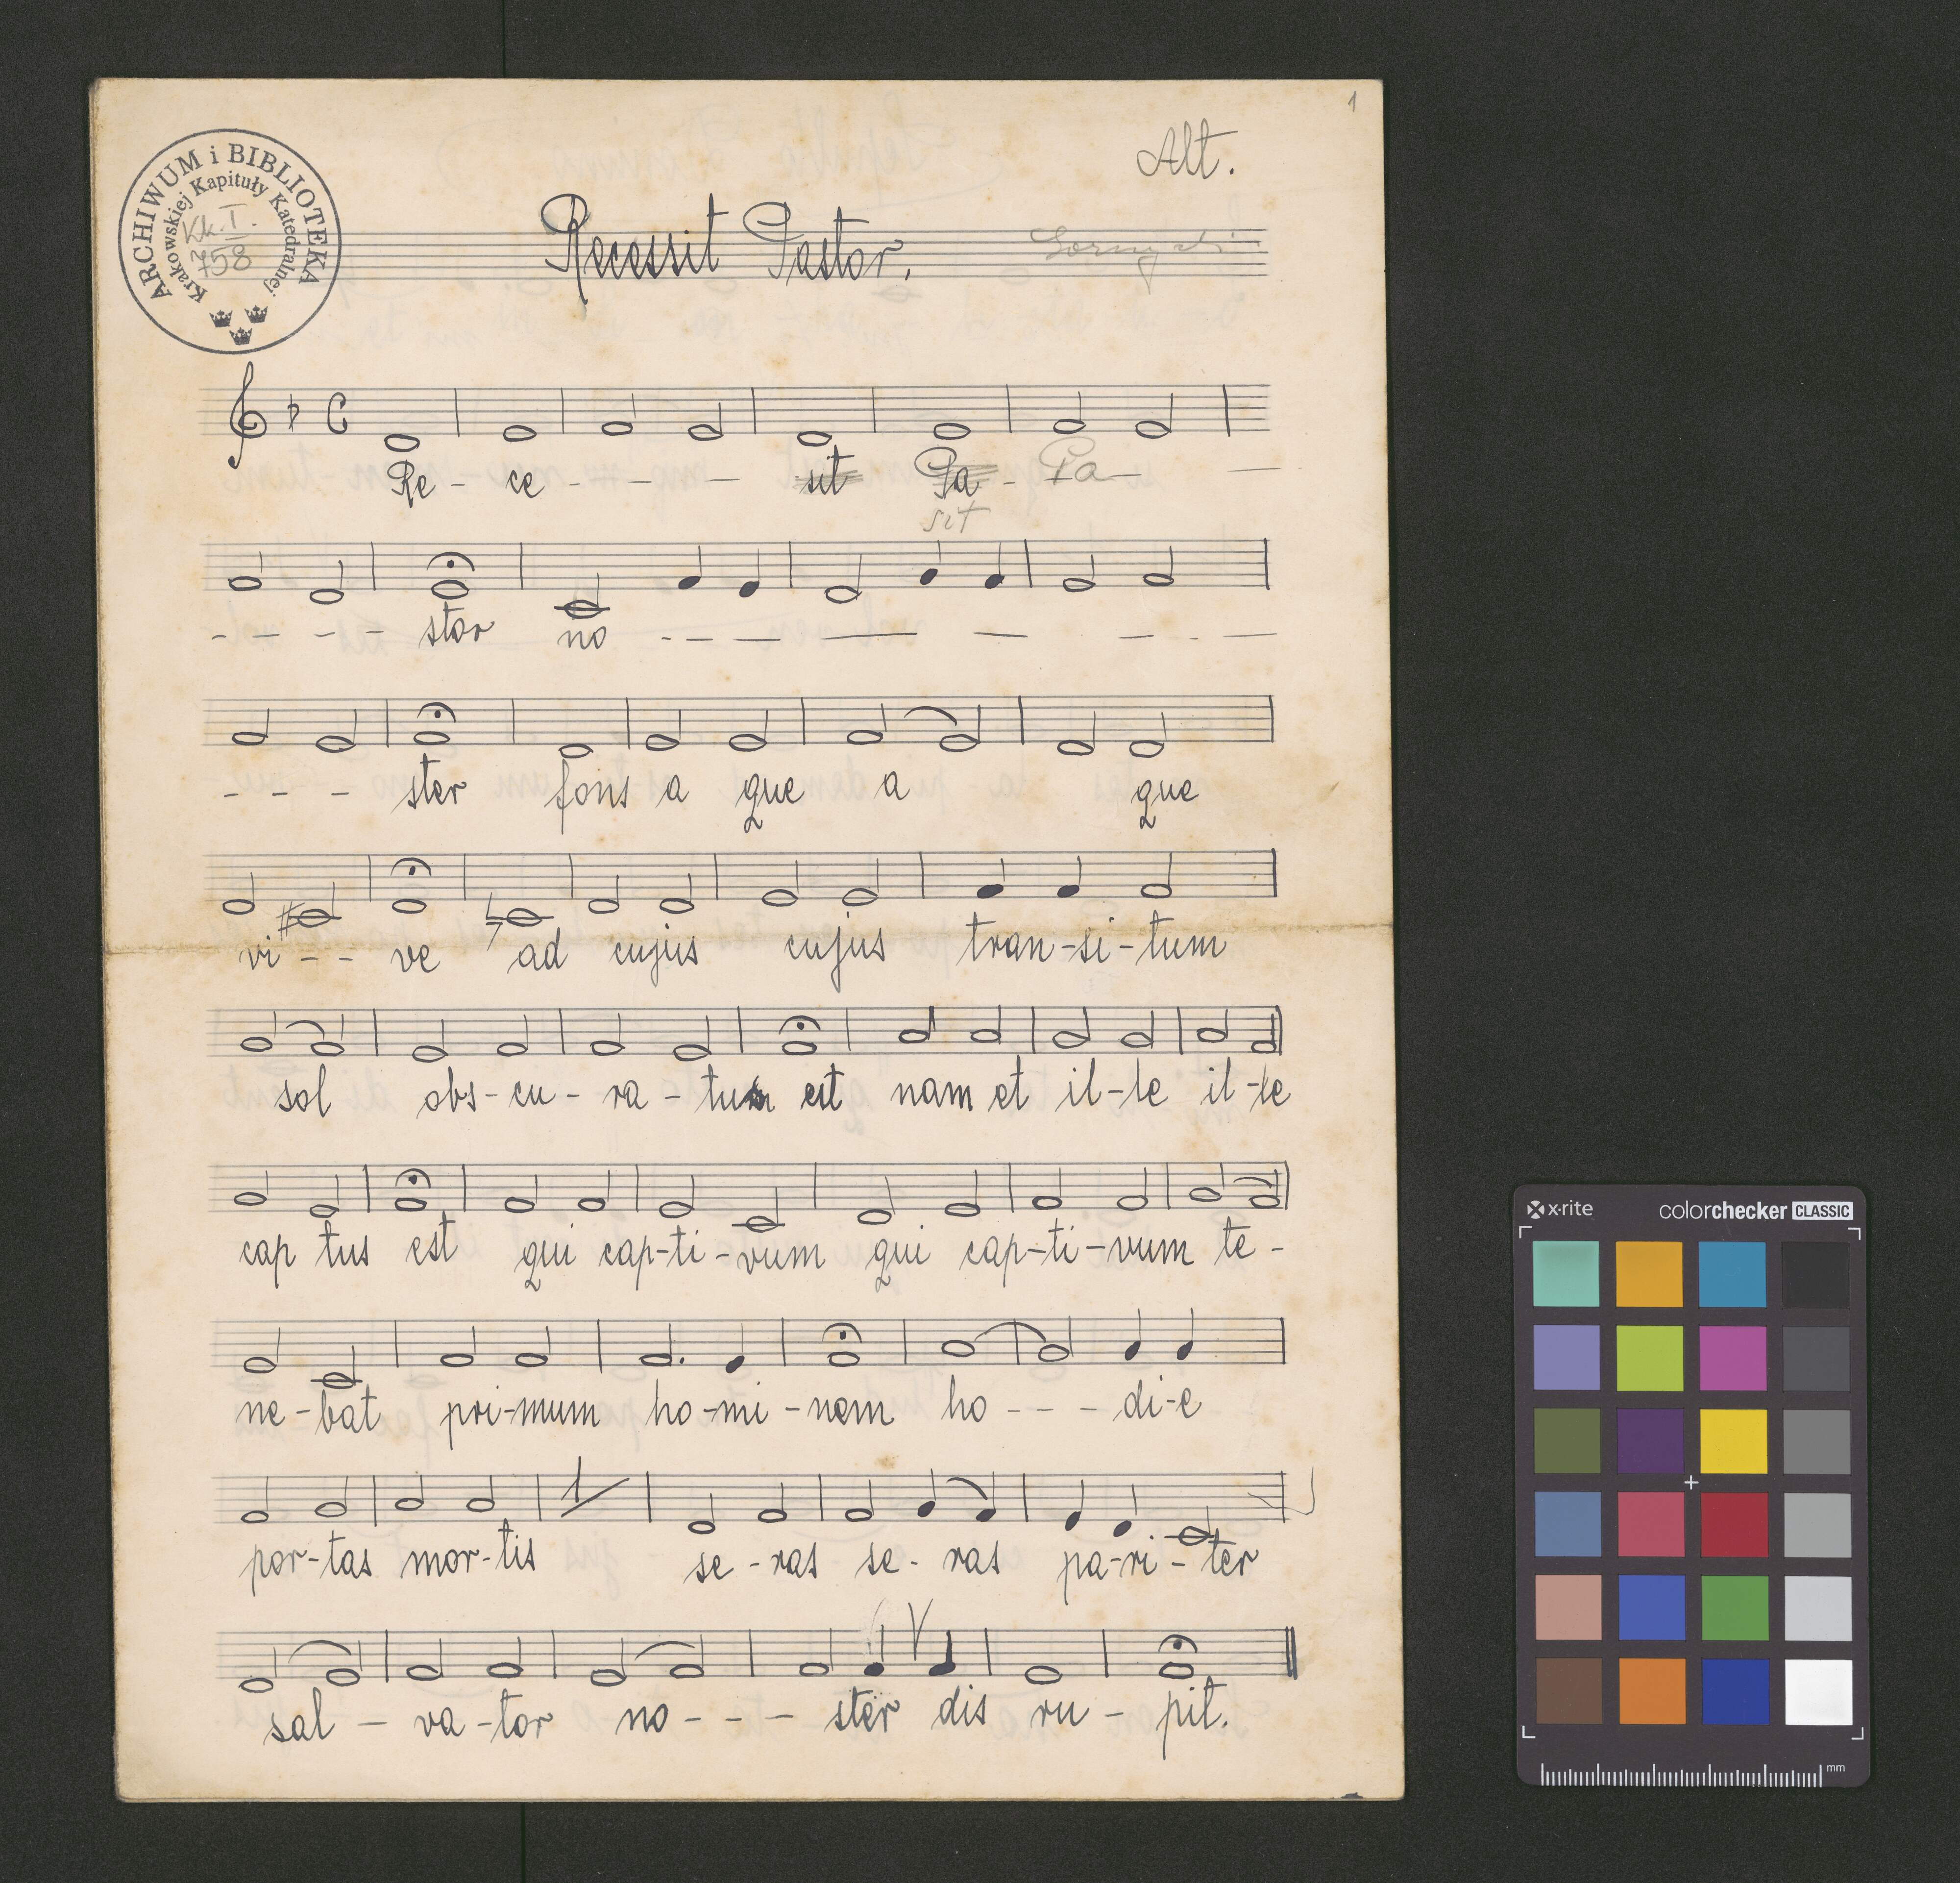 1
Alt.
ARCHIWUM i BIBLIOTEKA
Krakowskiej Kapituły Katedralnej
Kk. I.
758
Recessit Pastor.
Re - ce - - - - sit Pa - Pa -
sit
- - - - stor no - - - - - - - -
- - - ster fons a que a que
vi - - ve ad cujus cujus tran-si-tum
sol obs-cu-ra-tus est nam et il-le il-le
cap tus est qui cap-ti-vum qui cap-ti-vum te-
ne-bat pri-mum ho-mi-nem ho - - - di-e
por-tas mor-tis se-ras se-ras pa-ri-ter
sal - va-tor no - - - ster dis ru - pit.
x-rite colorchecker CLASSIC
mm